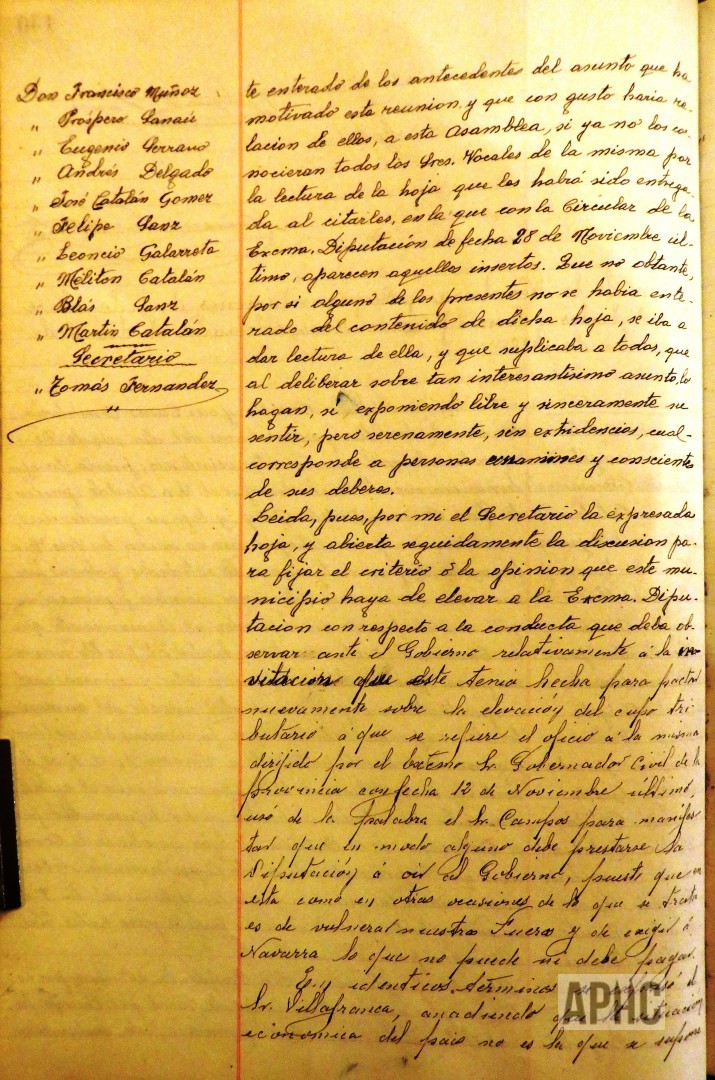 Don Francisco Muñoz
" Próspero Sanaú
" Eugenio Serrano
" Andrés Delgado
" José Catalán Gomez
" Felipe Sanz
" Leoncio Galarreta
" Meliton Catalán
" Blás Sanz
" Martín Catalán
Secretario
" Tomás Fernandez
"
te enterado de los antecedentes del asunto que ha
motivado esta reunion, y que con gusto haria re-
lacion de ellos, a esta Asamblea, si ya no los co-
nocieran todos los Sres. Vocales de la misma por
la lectura de la hoja que les habrá sido entrega-
da al citarles, en la que con la Circular de la
Excma. Diputación de fecha 28 de Noviembre úl-
timo, aparecen aquellos insertos. Que no obtante,
por si alguno de los presentes no se habia ente-
rado del contenido de dicha hoja, se iba a
dar lectura de ella, y que suplicaba a todos, que
al deliberar sobre tan interesantisimo asunto, lo
hagan, si exponiendo libre y sinceramente su
sentir, pero serenamente, sin extridencias, cual
corresponde a personas y conscientes
de sus deberes.
Leida, pues, por mi el Secretario la expresada
hoja, y abierta seguidamente la discusion pa-
ra fijar el criterio ó la opinion que este mu-
nicipio haya de elevar a la Excma. Dipu-
tacion con respecto a la conducta que deba ob-
servar ante el Gobierno relativamente á la in-
vitacion que este tenia hecha para pactar
nuevamente sobre la elevacion del cupo tri
butario á que se refiere el oficio á la misma
dirijido por el Sr. Gobernador Civil de la
Provincia con fecha 12 de Noviembre último,
usó de la palabra el Sr. Campos para manifes
tar que en modo alguno debe prestarse la
Diputación á oir al Gobierno, puesto que en
esta como en otras ocasiones de lo que se trata
es de vulnerar nuestros Fueros y de exigir á
Navarra lo que no puede ni debe pagar.
En identicos términos se expresó el
Sr. Villafranca, anadiendo que la situacion
económica del pais no es la que se supone
APHC